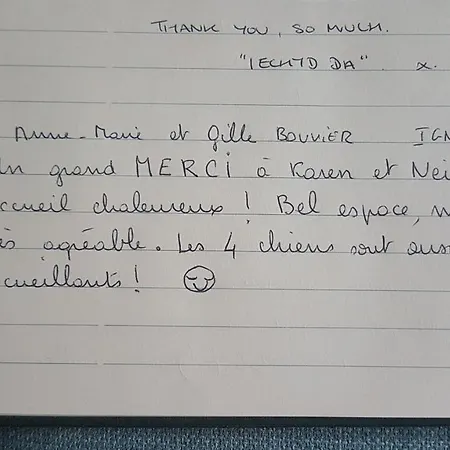 THANK YOU, SO MUCH.
"IECHYD DA" x.
Anne-Marie et Gille BOUVIER IGN
Un grand MERCI à Karen et Nei
ccueil chaleureux ! Bel espace, n
ès agréable. Les 4 chiens sont auss
cueillants !